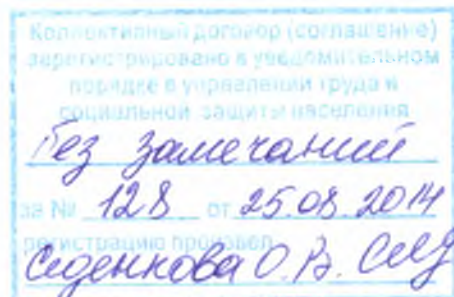 Коллективный договор (соглашение)
зарегистрировано в уведомительном
порядке в управлении труда и
социальной защиты населения
без замечаний
за № 128 от 25.08.2014
регистрацию произвел
Седенкова О.В.